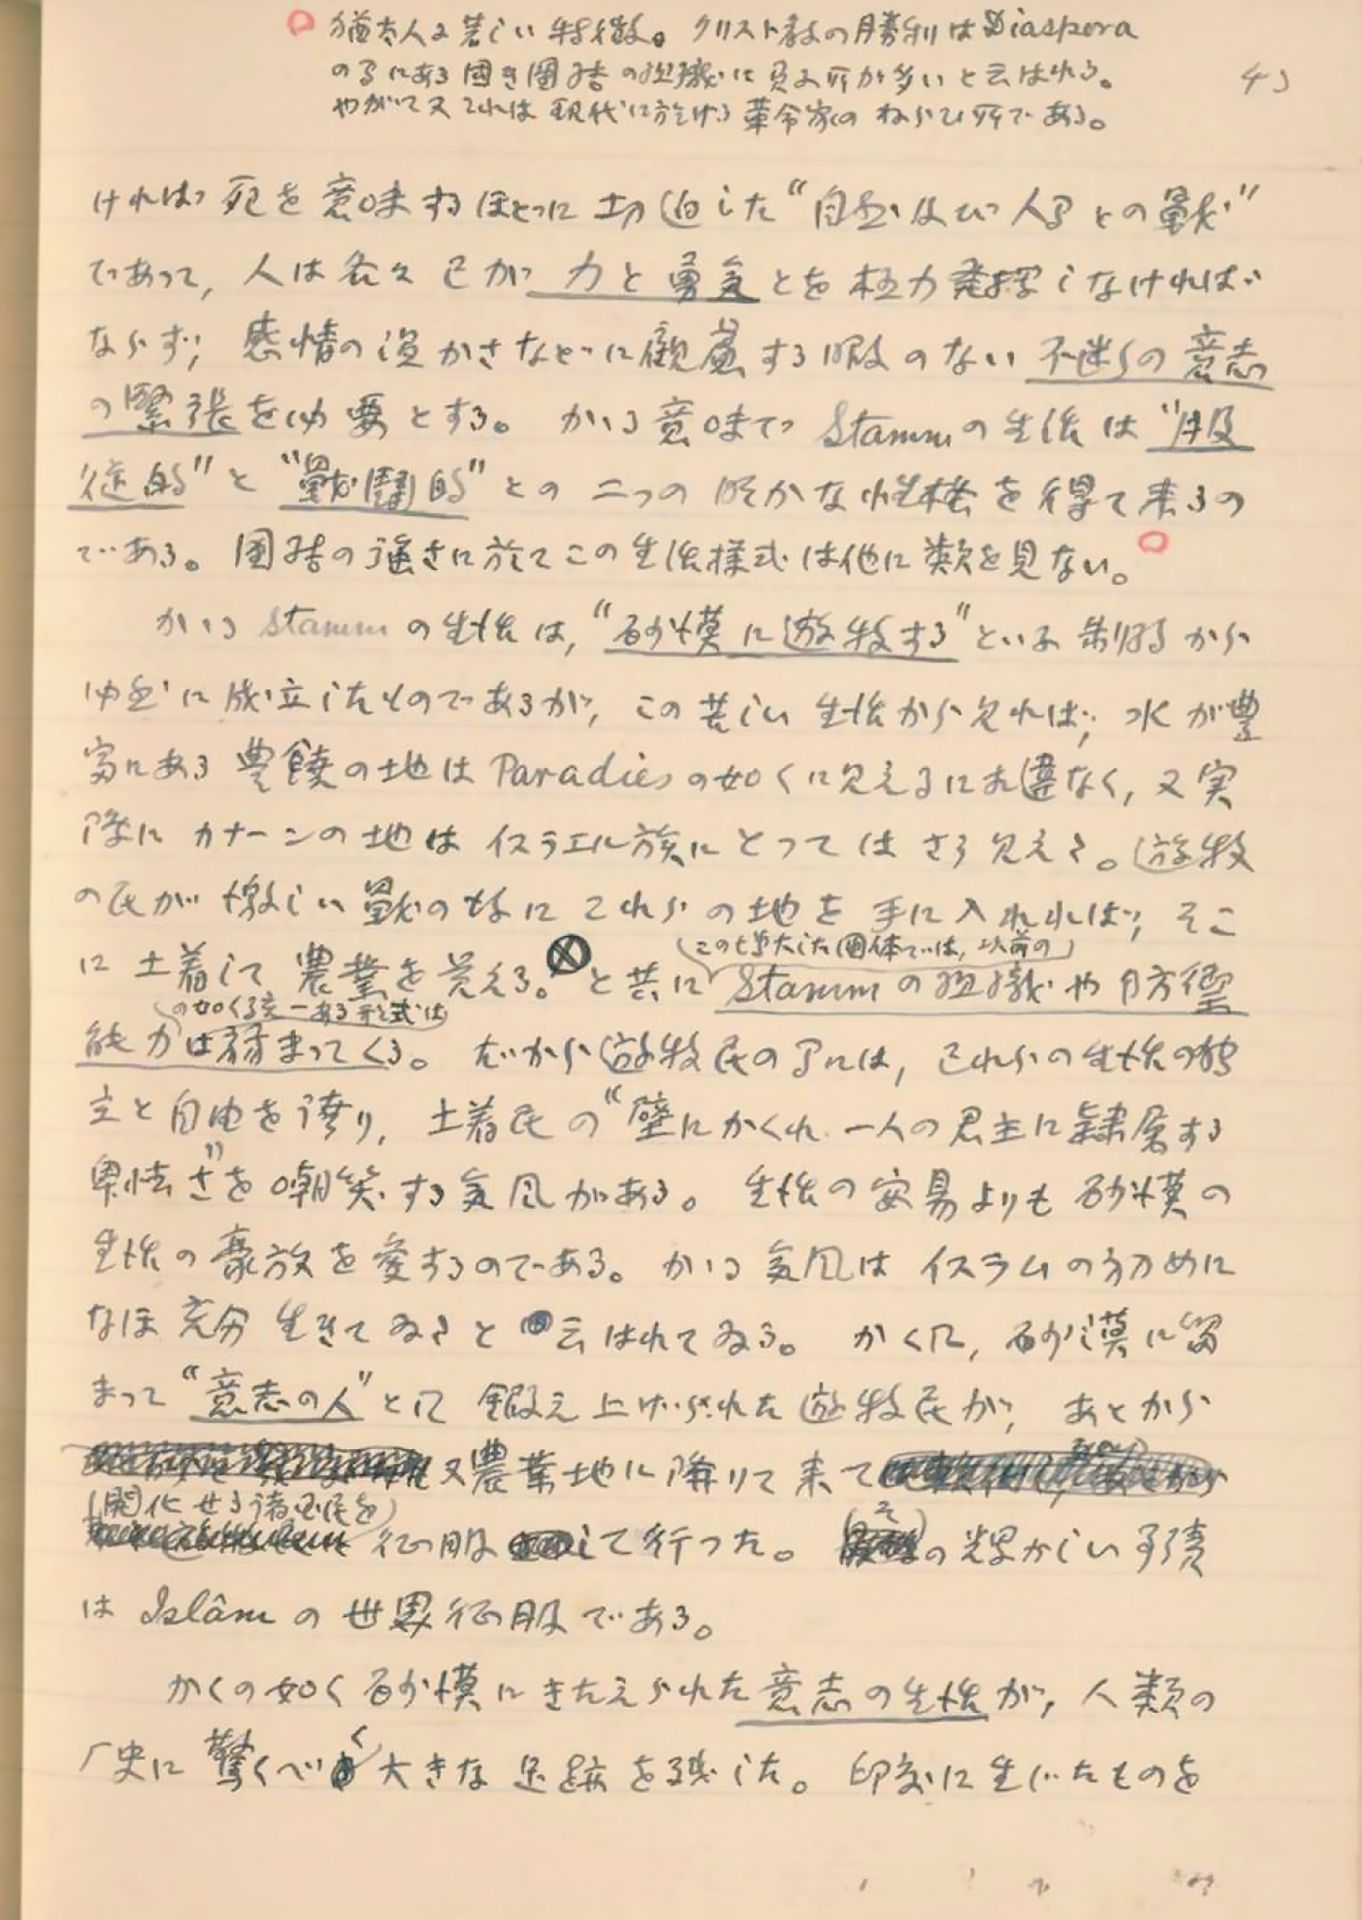 猶太人の著しい特徴。クリスト教の勝利はDiaspora
の間にある固き團結の組織に負ふ所が多いと云はれる。
やがて又これは現代に於ける革命家のねらひ所である。
43
ければ死を意味するほどに切迫した“自然及び人間との戦”
であって, 人は各々己が力と勇気とを極力発揮しなければ
ならず, 感情の温かさなどに顧慮する暇のない不断の意志
の緊張を必要とする。かゝる意味で Stammの生活は“服
従的”と“戦闘的”との二つの明かな性格を得て来るの
である。團結の強さに於てこの生活様式は他に類を見ない。
かゝる Stammの生活は, “砂漠に遊牧する”といふ制約から
必然に成立したものであるが, この苦しい生活から見れば, 水が豊
富にある豊饒の地は Paradiesの如くに見えるに相違なく, 又実
際にカナーンの地はイスラエル族にとってはさう見えた。遊牧
の民が激しい戦の後にこれらの地を手に入れれば, そこ
に土着して農業を覚える。と共に
この増大した團体では, 以前の
Stammの組織や防禦
の如く統一ある形式は
能力は弱まってくる。だから遊牧民の間には, 己れらの生活の独
立と自由を誇り, 土着民の“壁にかくれ一人の君主に隷属する
卑怯さ”を嘲笑する気風がある。生活の安易よりも砂漠の
生活の豪放を愛するのである。かゝる気風はイスラムの初めに
なほ充分生きてゐたと云はれてゐる。かくて, 砂漠に留
まって“意志の人”として鍛え上げられた遊牧民が, あとから
又農業地に降りて来て
開化せる諸国民を
征服して行った。
その輝かしい功績
は Islâmの世界征服である。
かくの如く砂漠にきたえられた意志の生活が, 人類の
歴史に驚くべく大きな足跡を残した。印度に生じたものを